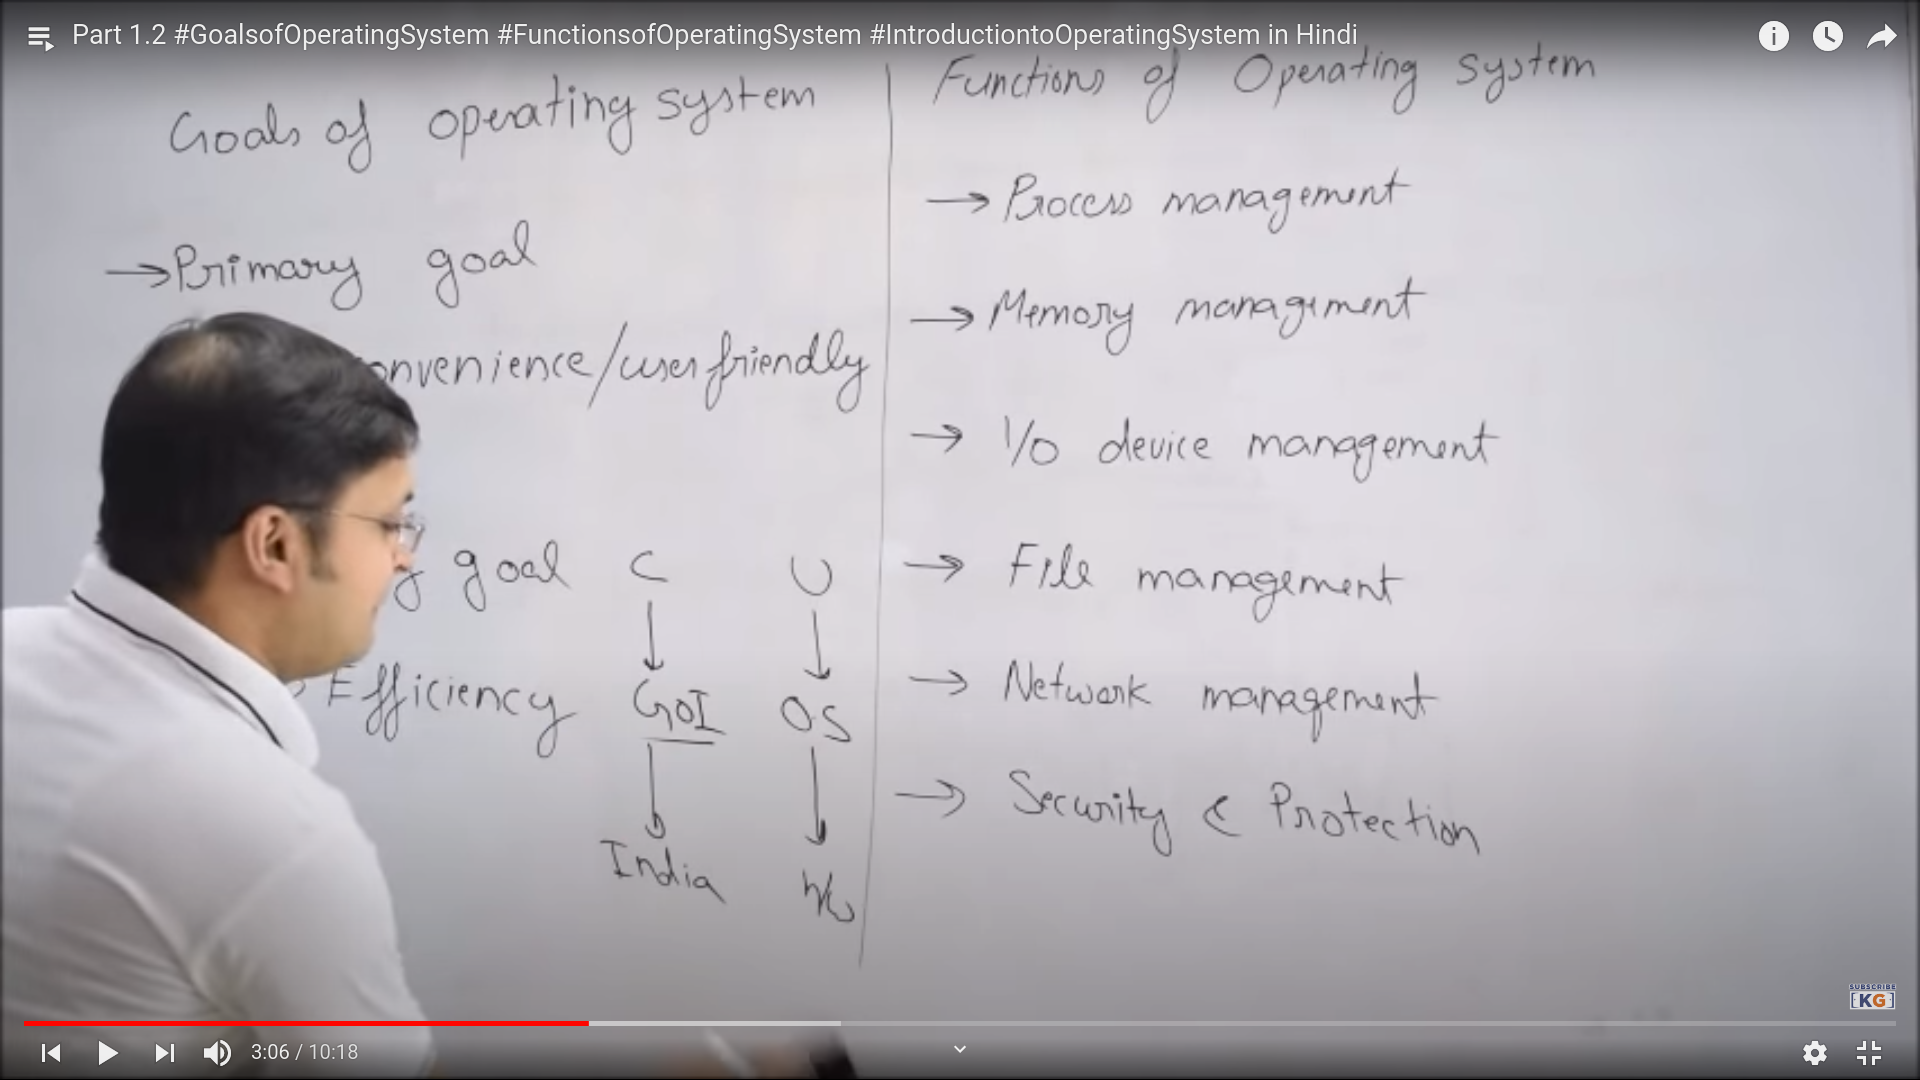 Part 1.2 #GoalsofOperatingSystem #FunctionsofOperatingSystem #IntroductiontoOperatingSystem in Hindi
Goals of operating system
→ Primary goal
onvenience/user friendly
y goal
→ Efficiency
C
↓
GOI
↓
India
U
↓
OS
↓
Functions of Operating system
→ Process management
→ Memory management
→ I/O device management
→ File management
→ Network management
→ Security & Protection
SUBSCRIBE
KG
3:06 / 10:18